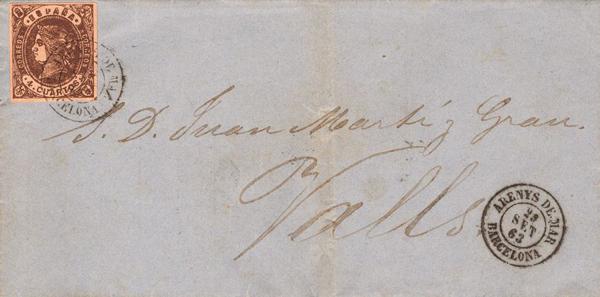 ESPAÑA
CORREOS
4 CUARTOS
DE MAR
BARCELONA
S. D. Juan Martí y Grau.
Valls
ARENYS DE MAR
SET
63
BARCELONA